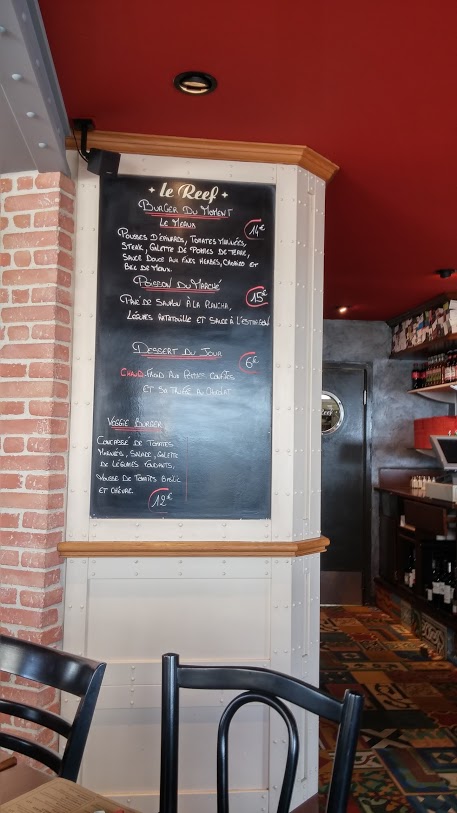 Le Reef
Burger Du Moment
Le Meaux 14€
Pousses D'épinards, Tomates Marinées,
Steak, Galette De Pommes De Terre,
Sauce Douce aux fines herbes, et
Brie De Meaux.
Poisson Du Marché
Pavé De Saumon À la Plancha, 15€
Légumes Ratatouille et Sauce à l'estragon
Dessert Du Jour
Chaud-Froid Aux Confites 6€
et sa au Chocolat
Veggie Burger
Concassé De Tomates
Marinées, Salade, Galette
De Légumes Fondants,
Mousse De Tomates Basilic
et chèvre. 12€